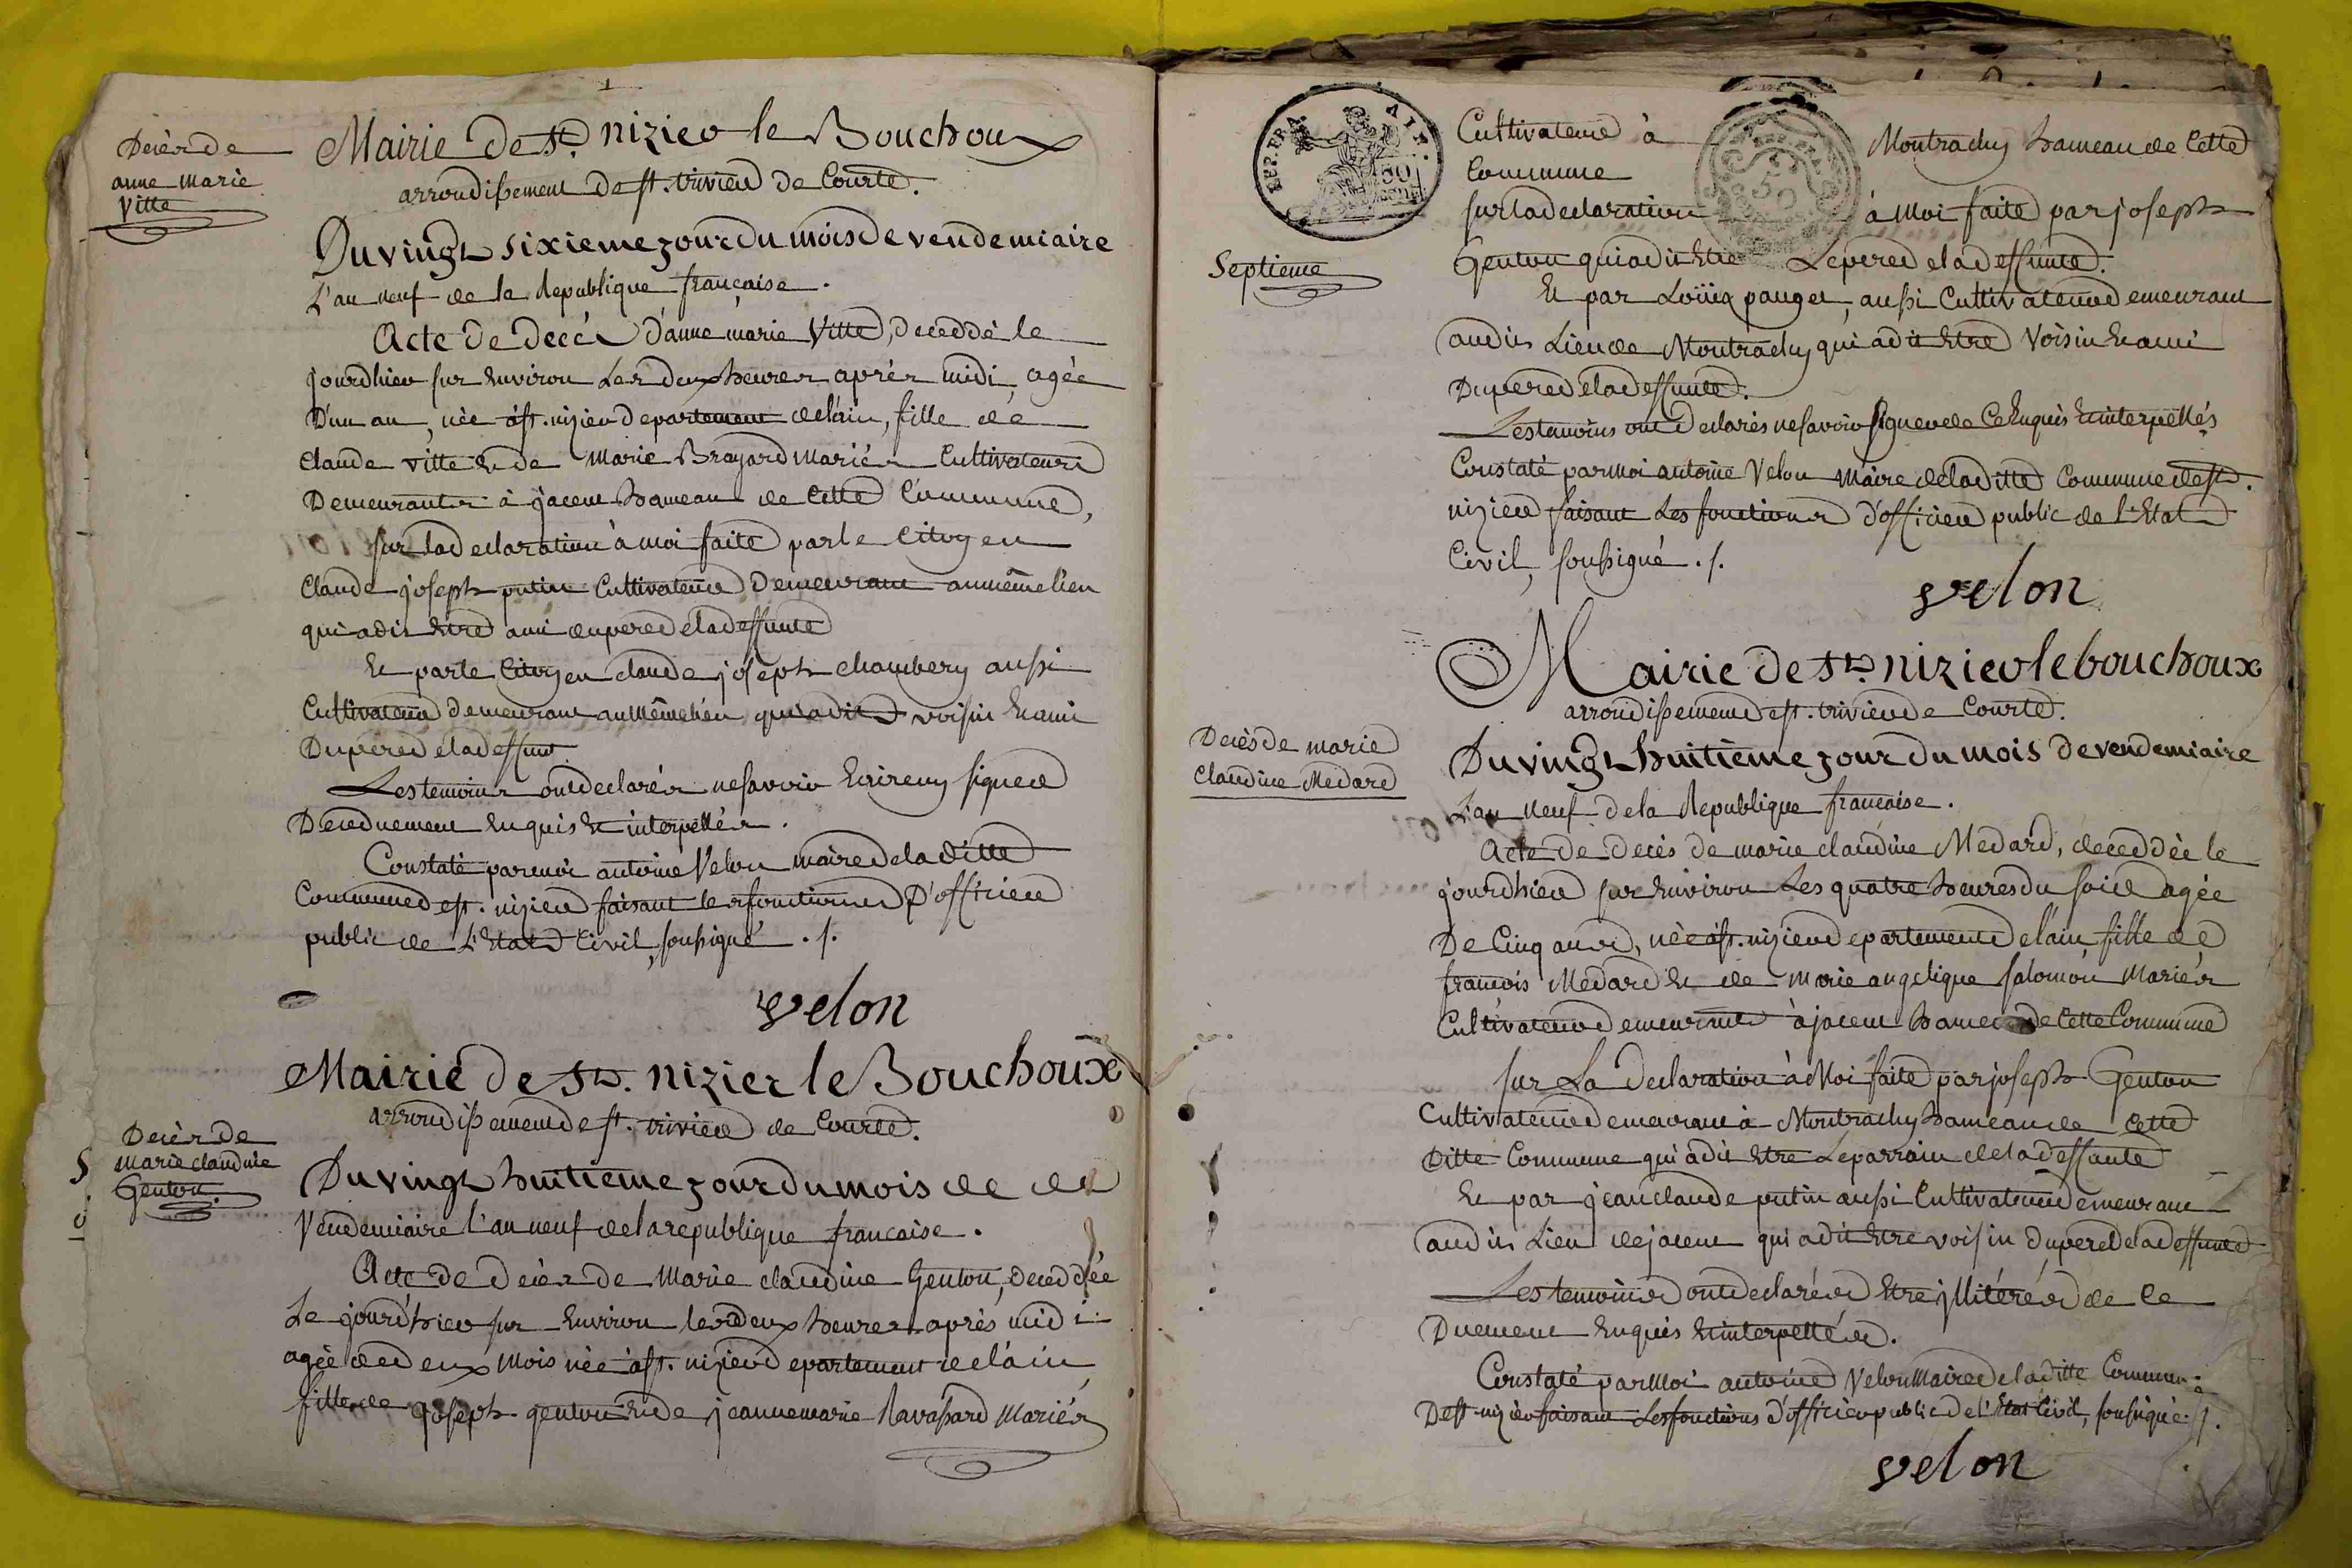 Decès de
anne marie
Vitte
Mairie de St. nizier le Bouchoux
arrondissement de st. trivier de Courte.
Du vingt sixieme jour du mois de vendemiaire
L'an neuf de la Republique française.
Acte de decés d'anne marie Vitte, deceddé le
jourdhier sur Environ Les deux heures aprés midi, agée
D'un an, née à st. nizier departement de lain, fille de
Claude vitte Et de Marie Brayard mariés Cultivateurs
Demeurants à jacem hameau de Cette Commune,
sur la declaration à moi faite par le Citoyen
Claude joseph putin Cultivateur Demeurant au même lieu
qui a dit Etre ami du pere de la deffunte
Et par le Citoyen claude joseph chambery aussi
Cultivateur demeurant au même lieu qui a dit voisin Et ami
Du pere de la deffunt
Les temoins ont declarés ne savoir Ecrire ny signer
De ce duement Enquis Et interpellés.
Constaté par moi antoine Velon maire de la ditte
Commune de st. nizier faisant les fonctions D'officier
public de L'Etat Civil, soussigné ./.
velon
Mairie de St. nizier le Bouchoux
arrondissement de st. trivier de Courte.
Decès de
marie claudine
Genton.
Du vingt huitieme jour du mois de de
Vendemiaire l'an neuf de la republique francaise.
Acte de decès de Marie claudine Genton, deceddée
Le jourdhier sur Environ les deux heures aprés midi
agée de deux mois née à st. nizier departement de lain
fille de joseph genton Et de jeanne marie Ravassard Mariés
REP. FRA
50
Septieme
Cultivateurs à Montrachy hameau de Cette
Commune
sur la declaration à Moi faite par joseph
Genton qui a dit Etre Le pere de la deffunte.
Et par Loüis pauget, aussi Cultivateur demeurant
audit Lieu de Montrachy qui a dit Etre Voisin Et ami
Du pere de la deffunte.
Les temoins ont declarés ne savoir signer de Ce Enquis Et interpellés
Constaté par moi antoine Velon Maire de la ditte Commune de st.
nizier faisant Les fonctions d'officier public de l'Etat
Civil, soussigné ./.
velon
Mairie de St. nizier le bouchoux
arrondissement de st. trivier de Courte.
Decès de marie
Claudine Medard
Du vingt huitième jour du mois de vendemiaire
L'an Neuf de la Republique francaise.
Acte de decès de marie claudine Medard, deceddée le
jourdhier sur Environ Les quatre heures du soir agée
De Cinq ans, née à st. nizier departement de lain fille de
françois Medard Et de Marie angelique salomon Mariés
Cultivateurs demeurants à jacem hameau de Cette Commune
sur La declaration à Moi faite par joseph Genton
Cultivateur demeurant à Montrachy hameau de Cette
Ditte Commune qui a dit Etre Le parrain de la deffunte
Et par jean claude putin aussi Cultivateur demeurant
audit Lieu de jacem qui a dit Etre voisin du pere de la deffunte
Les temoins ont declarés Etre jllitérés de Ce
Duement Enquis Et interpellés.
Constaté par Moi antoine Velon Maire de la ditte Commune
De st. nizier faisant Les fonctions d'officier public de l'Etat Civil, soussigné ./.
velon